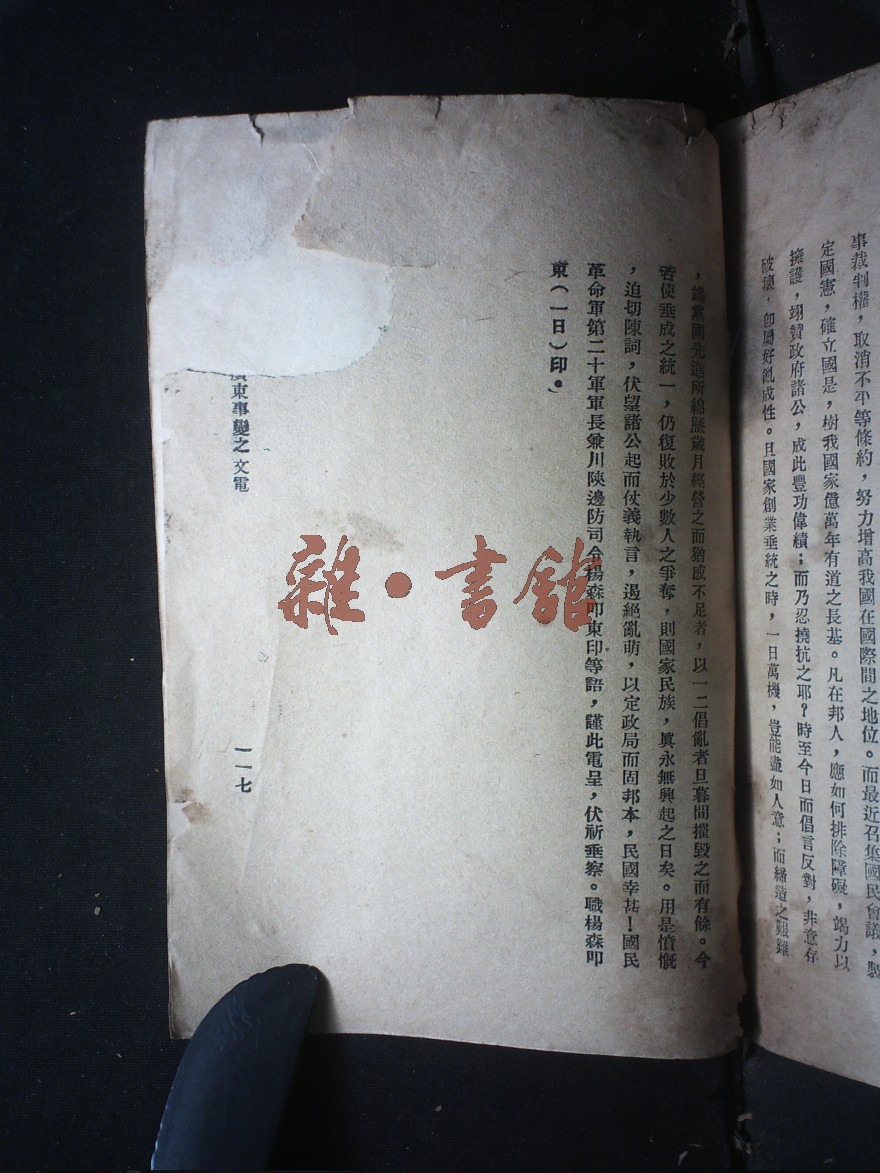 事裁判權，取消不平等條約，努力增高我國在國際間之地位。而最近召集國民會議，製
定國憲，確立國是，樹我國家億萬年有道之長基。凡在邦人，應如何排除障礙，竭力以
擁護，翊贊政府諸公，成此豐功偉績；而乃忍撓抗之耶？時至今日而倡言反對，非意存
破壞，卽屬好亂成性。且國家創業垂統之時，一日萬機，豈能盡如人意；而締造之艱難
，竭黨國先進所綿歷歲月經營之而猶感不足者，以一二倡亂者旦暮間摧毀之而有餘。今
若使垂成之統一，仍復敗於少數人之爭奪，則國家民族，眞永無興起之日矣。用是憤慨
，迫切陳詞，伏望諸公起而仗義執言，遏絕亂萌，以定政局而固邦本，民國幸甚！國民
革命軍第二十軍軍長兼川陝邊防司令楊森叩東印等語，謹此電呈，伏祈垂察。職楊森叩
東（一日）印。）
東事變之文電
一一七
雜·書館